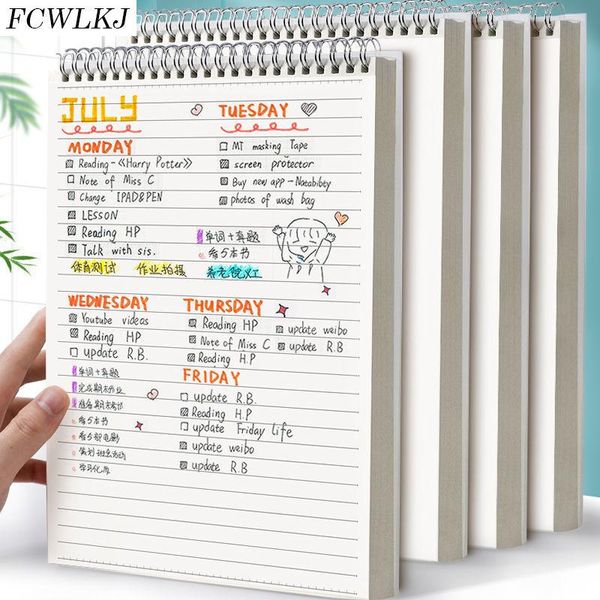 FCWLKJ
JULY
MONDAY
Reading-《Harry Potter》
Note of Miss C
Change IPAD&PEN
LESSON
Reading HP
Talk with sis.
体育测试 作业拍摄
TUESDAY
MT masking Tape
screen protector
Buy new app-Naeabibty
photos of wash bag
单词+真题
看5本书
养老院义工
WEDNESDAY
Youtube videos
Reading HP
update R.B.
单词+真题
完成期末作业
看5本书
看5部电影
学习化妆
THURSDAY
Reading HP
Note of Miss C
Reading H.P
update weibo
update R.B
FRIDAY
update R.B.
Reading H.P
update Friday life
update weibo
update R.B